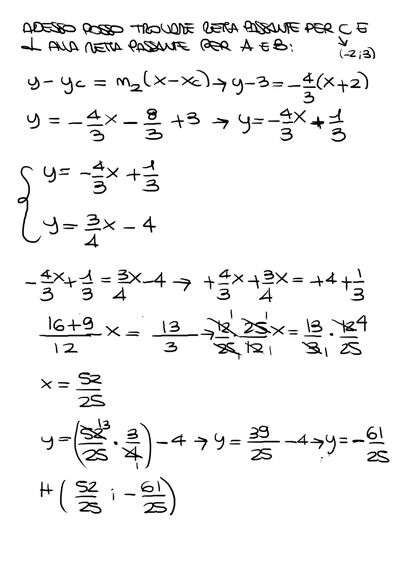 ADESSO POSSO TROVARE RETTA PASSANTE PER C E
⊥ ALLA RETTA PASSANTE PER A E B: (-2;3)
y - yc = m₂(x - xc) → y - 3 = -4/3(x + 2)
y = -4/3x - 8/3 + 3 → y = -4/3x + 1/3
{ y = -4/3x + 1/3
y = 3/4x - 4
-4/3x + 1/3 = 3/4x - 4 → +4/3x + 3/4x = +4 + 1/3
16+9/12 x = 13/3 → 12/25 · 25/12 x = 13/3 · 12/25
x = 52/25
y = (52/25 · 3/4) - 4 → y = 39/25 - 4 → y = -61/25
H(52/25 ; -61/25)